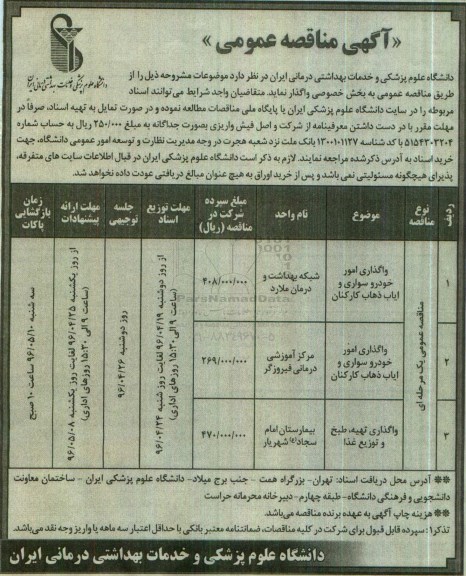 دانشگاه علوم پزشکی و خدمات بهداشتی درمانی ایران
«آگهی مناقصه عمومی»
دانشگاه علوم پزشکی و خدمات بهداشتی درمانی ایران در نظر دارد موضوعات مشروحه ذیل را از
طریق مناقصه عمومی به بخش خصوصی واگذار نماید. متقاضیان واجد شرایط می توانند اسناد
مربوطه را در سایت دانشگاه علوم پزشکی ایران یا پایگاه ملی مناقصات مطالعه نموده و در صورت تمایل به تهیه اسناد، صرفاً در
مهلت مقرر با در دست داشتن معرفینامه از شرکت و اصل فیش واریزی بصورت جداگانه به مبلغ ۲۵۰/۰۰۰ ریال به حساب شماره
۵۱۵۴۳۰۳۲۰۴ با کد شناسه ۱۳۰۱۰۱۱۲۷ بانک ملت نزد شعبه هجرت در وجه مدیریت نظارت و توسعه امور عمومی دانشگاه، جهت
خرید اسناد به آدرس ذکرشده مراجعه نمایند. لازم به ذکر است دانشگاه علوم پزشکی ایران در قبال اطلاعات سایت های متفرقه،
پذیرای هیچگونه مسئولیتی نمی باشد و پس از خرید اوراق به هیچ عنوان مبالغ دریافتی عودت داده نخواهد شد.
ردیف | نوع مناقصه | موضوع | نام واحد | مبلغ سپرده شرکت در مناقصه (ریال) | مهلت توزیع اسناد | جلسه توجیهی | مهلت ارائه پیشنهادات | زمان بازگشایی پاکات
مناقصه عمومی یک مرحله ای
۱ | واگذاری امور خودرو سواری و ایاب ذهاب کارکنان | شبکه بهداشت و درمان ملارد | ۴۰۸/۰۰۰/۰۰۰
۲ | واگذاری امور خودرو سواری و ایاب ذهاب کارکنان | مرکز آموزشی درمانی فیروزگر | ۲۶۹/۰۰۰/۰۰۰
۳ | واگذاری تهیه، طبخ و توزیع غذا | بیمارستان امام سجاد(ع) شهریار | ۴۷۰/۰۰۰/۰۰۰
از روز دوشنبه ۹۶/۰۴/۱۹ لغایت روز شنبه ۹۶/۰۴/۲۴
(ساعت ۹ الی ۱۵:۳۰ روزهای اداری)
روز دوشنبه ۹۶/۰۴/۲۶
از روز یکشنبه ۹۶/۰۴/۲۵ لغایت روز یکشنبه ۹۶/۰۵/۰۸
(ساعت ۹ الی ۱۵:۳۰ روزهای اداری)
سه شنبه ۹۶/۰۵/۱۰ ساعت ۱۰ صبح
ParsNamadData
** آدرس محل دریافت اسناد: تهران- بزرگراه همت - جنب برج میلاد- دانشگاه علوم پزشکی ایران - ساختمان معاونت
دانشجویی و فرهنگی دانشگاه- طبقه چهارم- دبیرخانه محرمانه حراست
** هزینه چاپ آگهی به عهده برنده مناقصه می‌باشد.
تذکر۱: سپرده قابل قبول برای شرکت در کلیه مناقصات، ضمانتنامه معتبر بانکی با حداقل اعتبار سه ماهه یا واریز وجه نقد می‌باشد.
دانشگاه علوم پزشکی و خدمات بهداشتی درمانی ایران